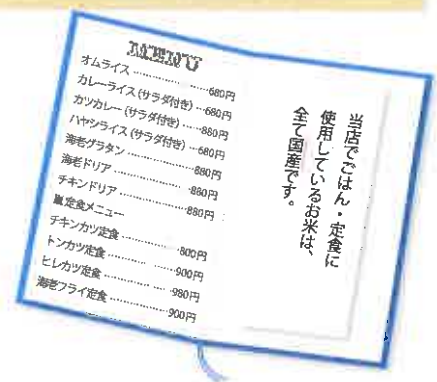 MENU
オムライス……………680円
カレーライス(サラダ付き)…680円
カツカレー(サラダ付き)……880円
ハヤシライス(サラダ付き)…680円
海老グラタン……………880円
海老ドリア……………880円
チキンドリア……………880円
■定食メニュー
チキンカツ定食…………800円
トンカツ定食……………900円
ヒレカツ定食……………980円
海老フライ定食…………900円
当店でごはん・定食に
使用しているお米は、
全て国産です。